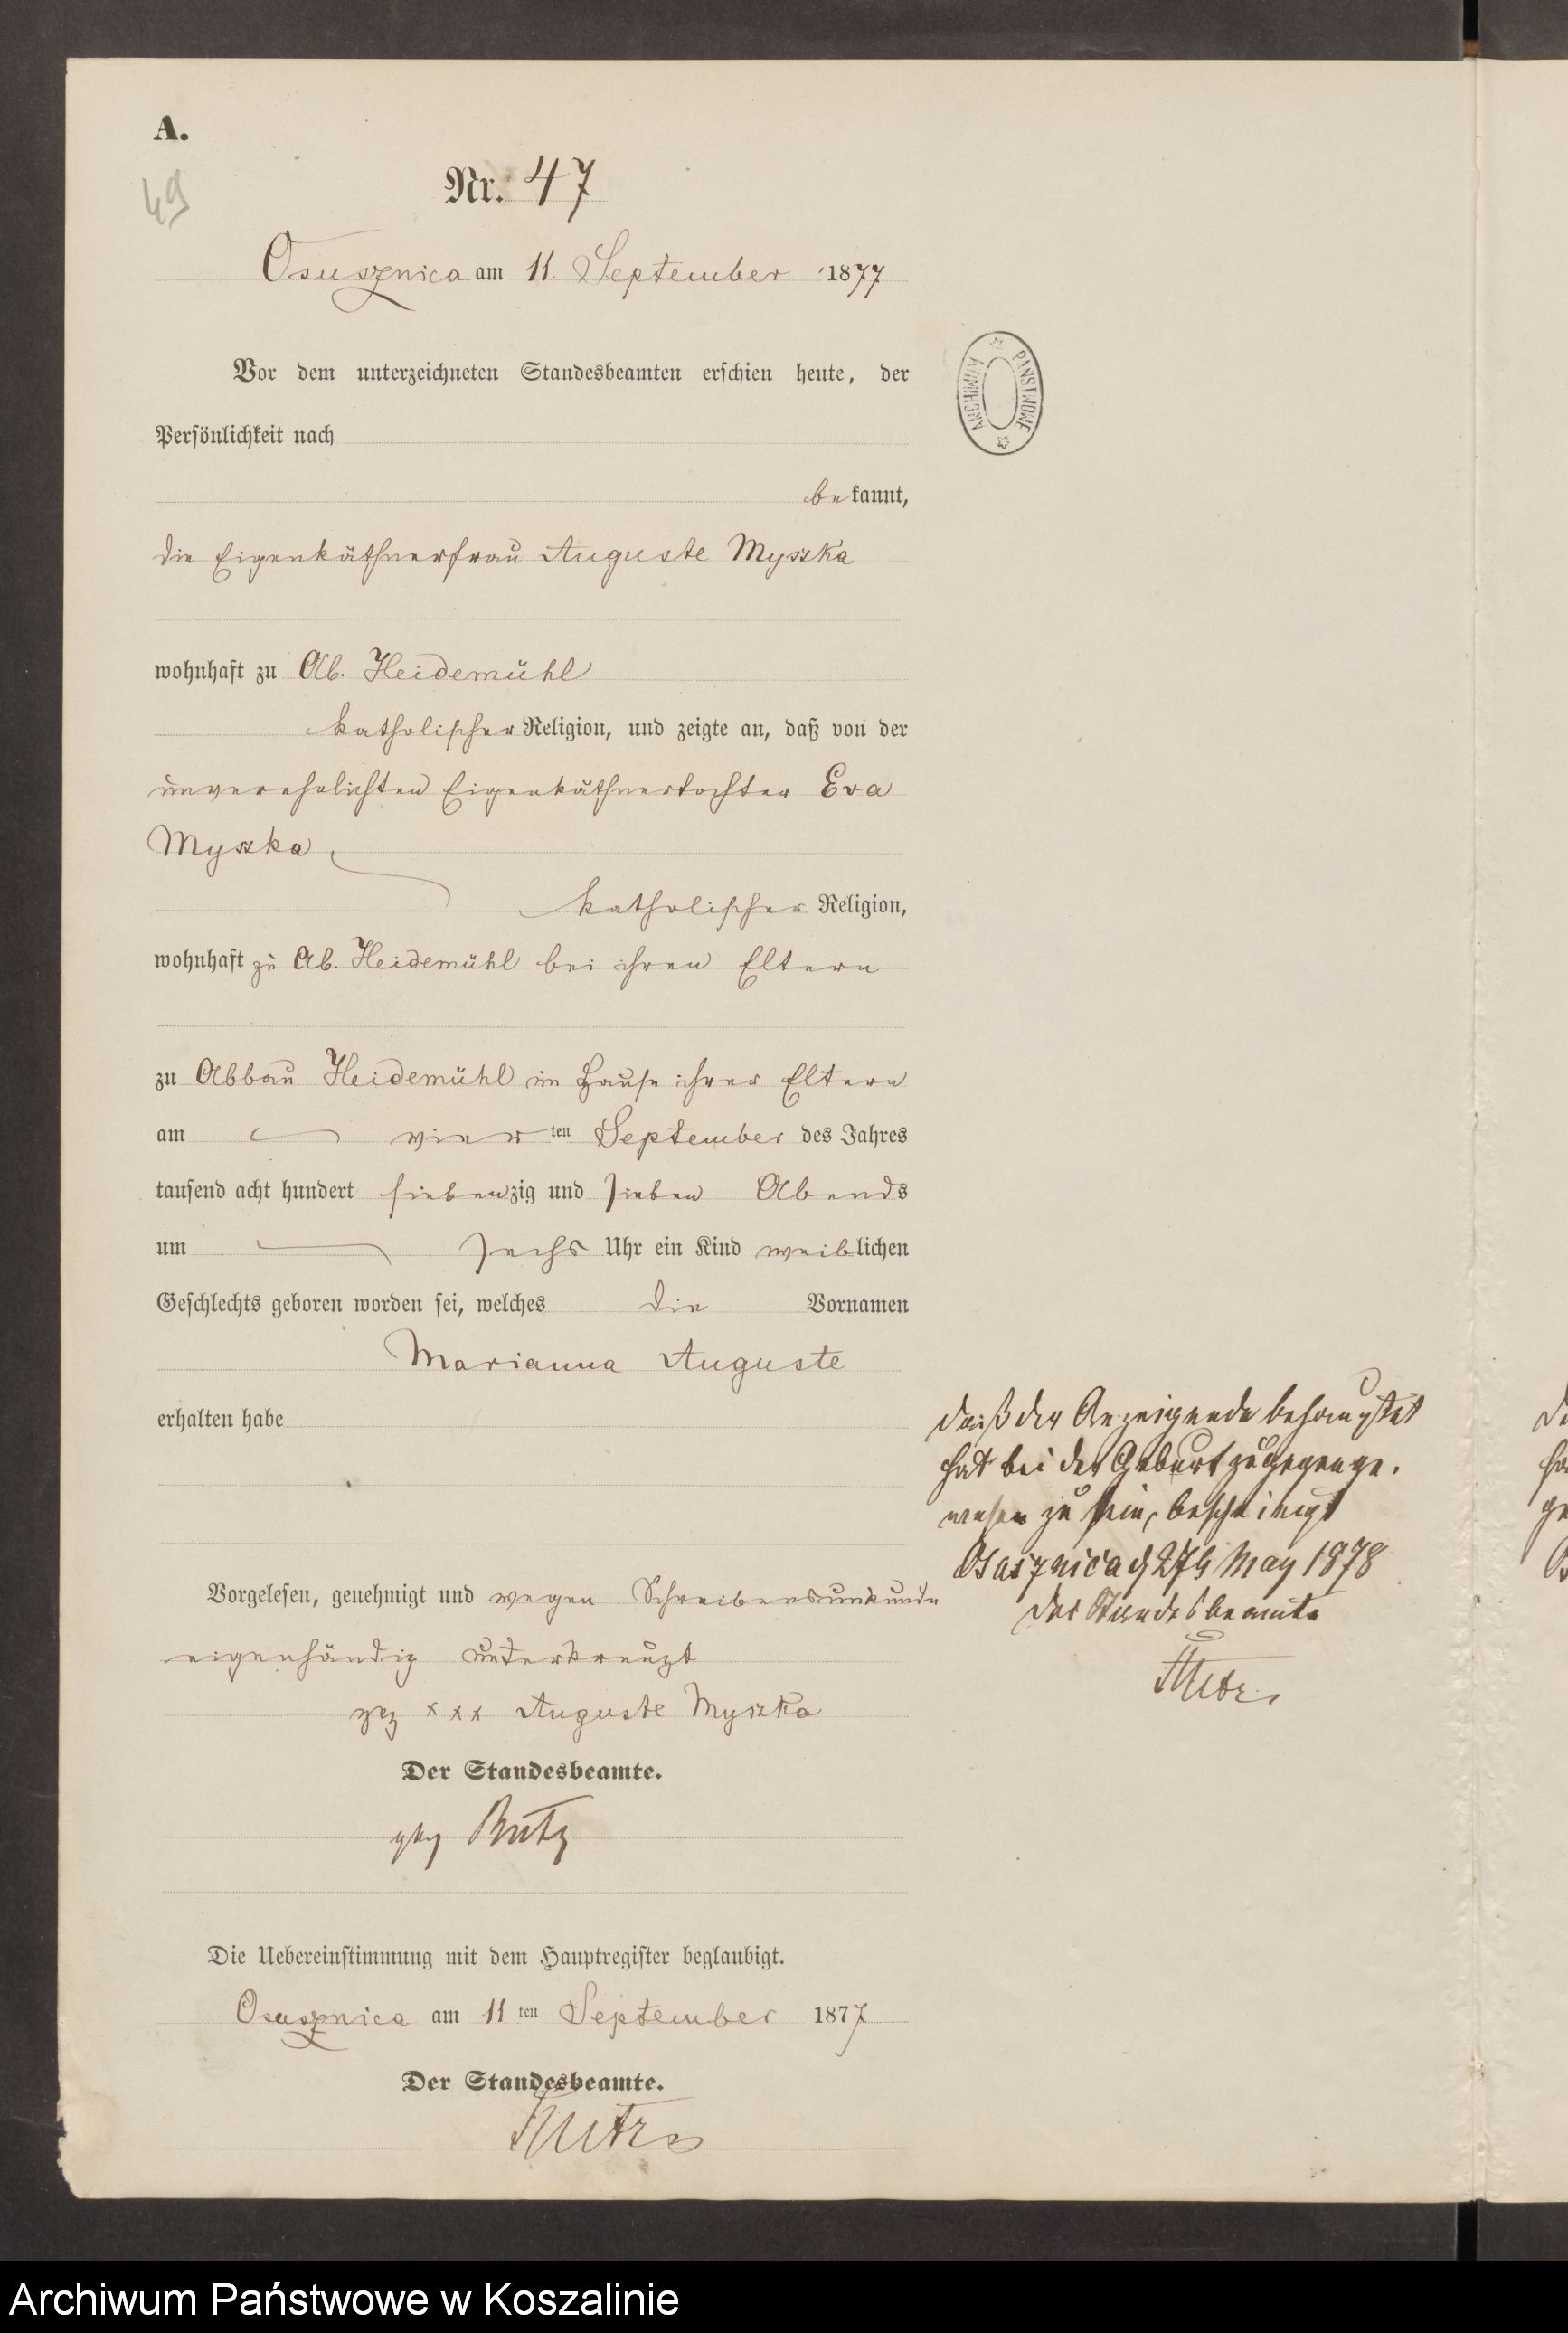 A.
49
Nr. 47
Osusznica am 11. September 1877
Vor dem unterzeichneten Standesbeamten erschien heute, der
Persönlichkeit nach
bekannt,
die Eigenkäthnerfrau Auguste Myszka
wohnhaft zu Ab. Heidemühl
katholischer Religion, und zeigte an, daß von der
unverehelichten Eigenkäthnertochter Eva
Myszka
katholischer Religion,
wohnhaft zu Ab. Heidemühl bei ihren Eltern
zu Abbau Heidemühl im Hause ihrer Eltern
am vierten September des Jahres
tausend acht hundert siebenzig und sieben Abends
um sechs Uhr ein Kind weiblichen
Geschlechts geboren worden sei, welches die Vornamen
Marianna Auguste
erhalten habe
Vorgelesen, genehmigt und wegen Schreibensunkunde
eigenhändig unterkreuzt
gez xxx Auguste Myszka
Der Standesbeamte.
gez
Die Uebereinstimmung mit dem Hauptregister beglaubigt.
Osusznica am 11ten September 1877
Der Standesbeamte.
ARCHIWUM PAŃSTWOWE
daß der Anzeigende behauptet
hat bei der Geburt zugegen ge.
wesen zu sein, bescheinigt
Osusznica d 27t May 1878
Der Standesbeamte
Archiwum Państwowe w Koszalinie